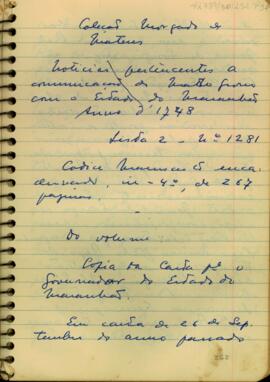 Coleção Morgado de
Mateus
Noticias pertencentes a
comunicação do Matto Grosso
com o Estado do Maranhão
Anno d' 1748
Lisboa 2 - Nº 1281
Codice manuscrito enca-
dernado, in-4º, de 267
páginas.
Do volume
Copia da Carta pª o
Governador do Estado do
Maranhão.
Em carta de 26 de Sep-
tembro do anno passado